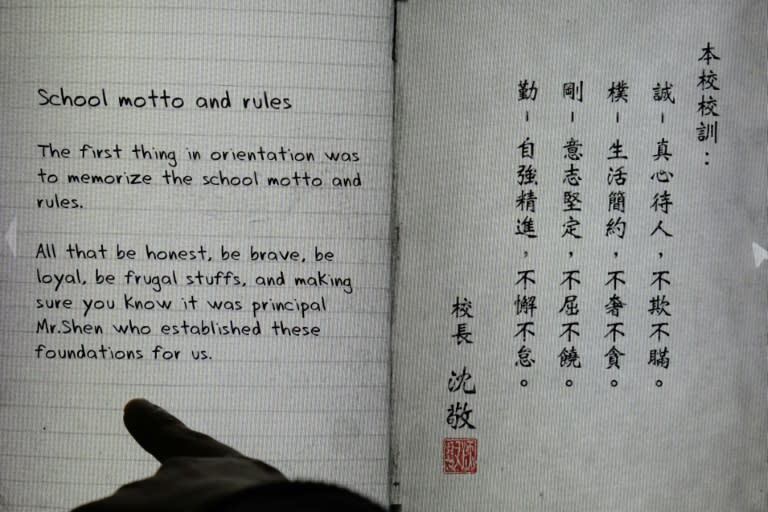 School motto and rules
The first thing in orientation was
to memorize the school motto and
rules.
All that be honest, be brave, be
loyal, be frugal stuffs, and making
sure you know it was principal
Mr.Shen who established these
foundations for us.
本校校訓：
誠－真心待人，不欺不瞞。
樸－生活簡約，不奢不貪。
剛－意志堅定，不屈不饒。
勤－自強精進，不懈不怠。
校長 沈敬